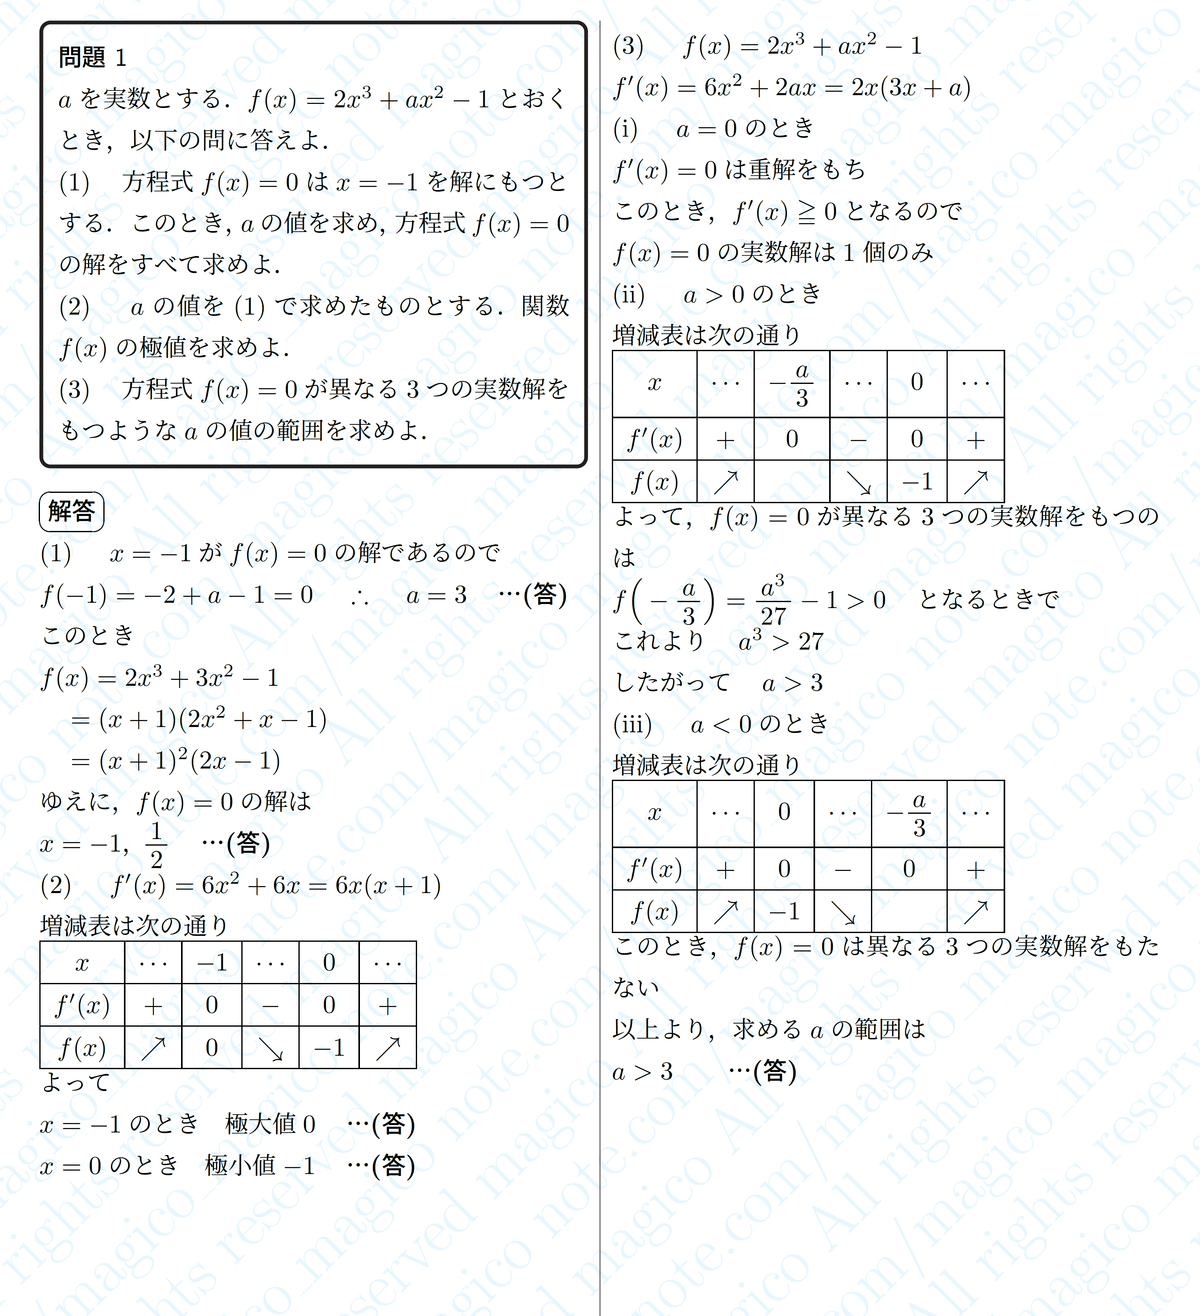 問題 1
a を実数とする．f(x) = 2x³ + ax² − 1 とおく
とき，以下の問に答えよ．
(1) 方程式 f(x) = 0 は x = −1 を解にもつと
する．このとき, a の値を求め, 方程式 f(x) = 0
の解をすべて求めよ．
(2) a の値を (1) で求めたものとする．関数
f(x) の極値を求めよ．
(3) 方程式 f(x) = 0 が異なる 3 つの実数解を
もつような a の値の範囲を求めよ．
解答
(1) x = −1 が f(x) = 0 の解であるので
f(−1) = −2 + a − 1 = 0 ∴ a = 3 …(答)
このとき
f(x) = 2x³ + 3x² − 1
= (x + 1)(2x² + x − 1)
= (x + 1)²(2x − 1)
ゆえに，f(x) = 0 の解は
x = −1, 1/2 …(答)
(2) f′(x) = 6x² + 6x = 6x(x + 1)
増減表は次の通り
x ··· −1 ··· 0 ···
f′(x) + 0 − 0 +
f(x) ↗ 0 ↘ −1 ↗
よって
x = −1 のとき 極大値 0 …(答)
x = 0 のとき 極小値 −1 …(答)
(3) f(x) = 2x³ + ax² − 1
f′(x) = 6x² + 2ax = 2x(3x + a)
(i) a = 0 のとき
f′(x) = 0 は重解をもち
このとき，f′(x) ≧ 0 となるので
f(x) = 0 の実数解は 1 個のみ
(ii) a > 0 のとき
増減表は次の通り
x ··· −a/3 ··· 0 ···
f′(x) + 0 − 0 +
f(x) ↗ ↘ −1 ↗
よって，f(x) = 0 が異なる 3 つの実数解をもつの
は
f(−a/3) = a³/27 − 1 > 0 となるときで
これより a³ > 27
したがって a > 3
(iii) a < 0 のとき
増減表は次の通り
x ··· 0 ··· −a/3 ···
f′(x) + 0 − 0 +
f(x) ↗ −1 ↘ ↗
このとき，f(x) = 0 は異なる 3 つの実数解をもた
ない
以上より，求める a の範囲は
a > 3 …(答)